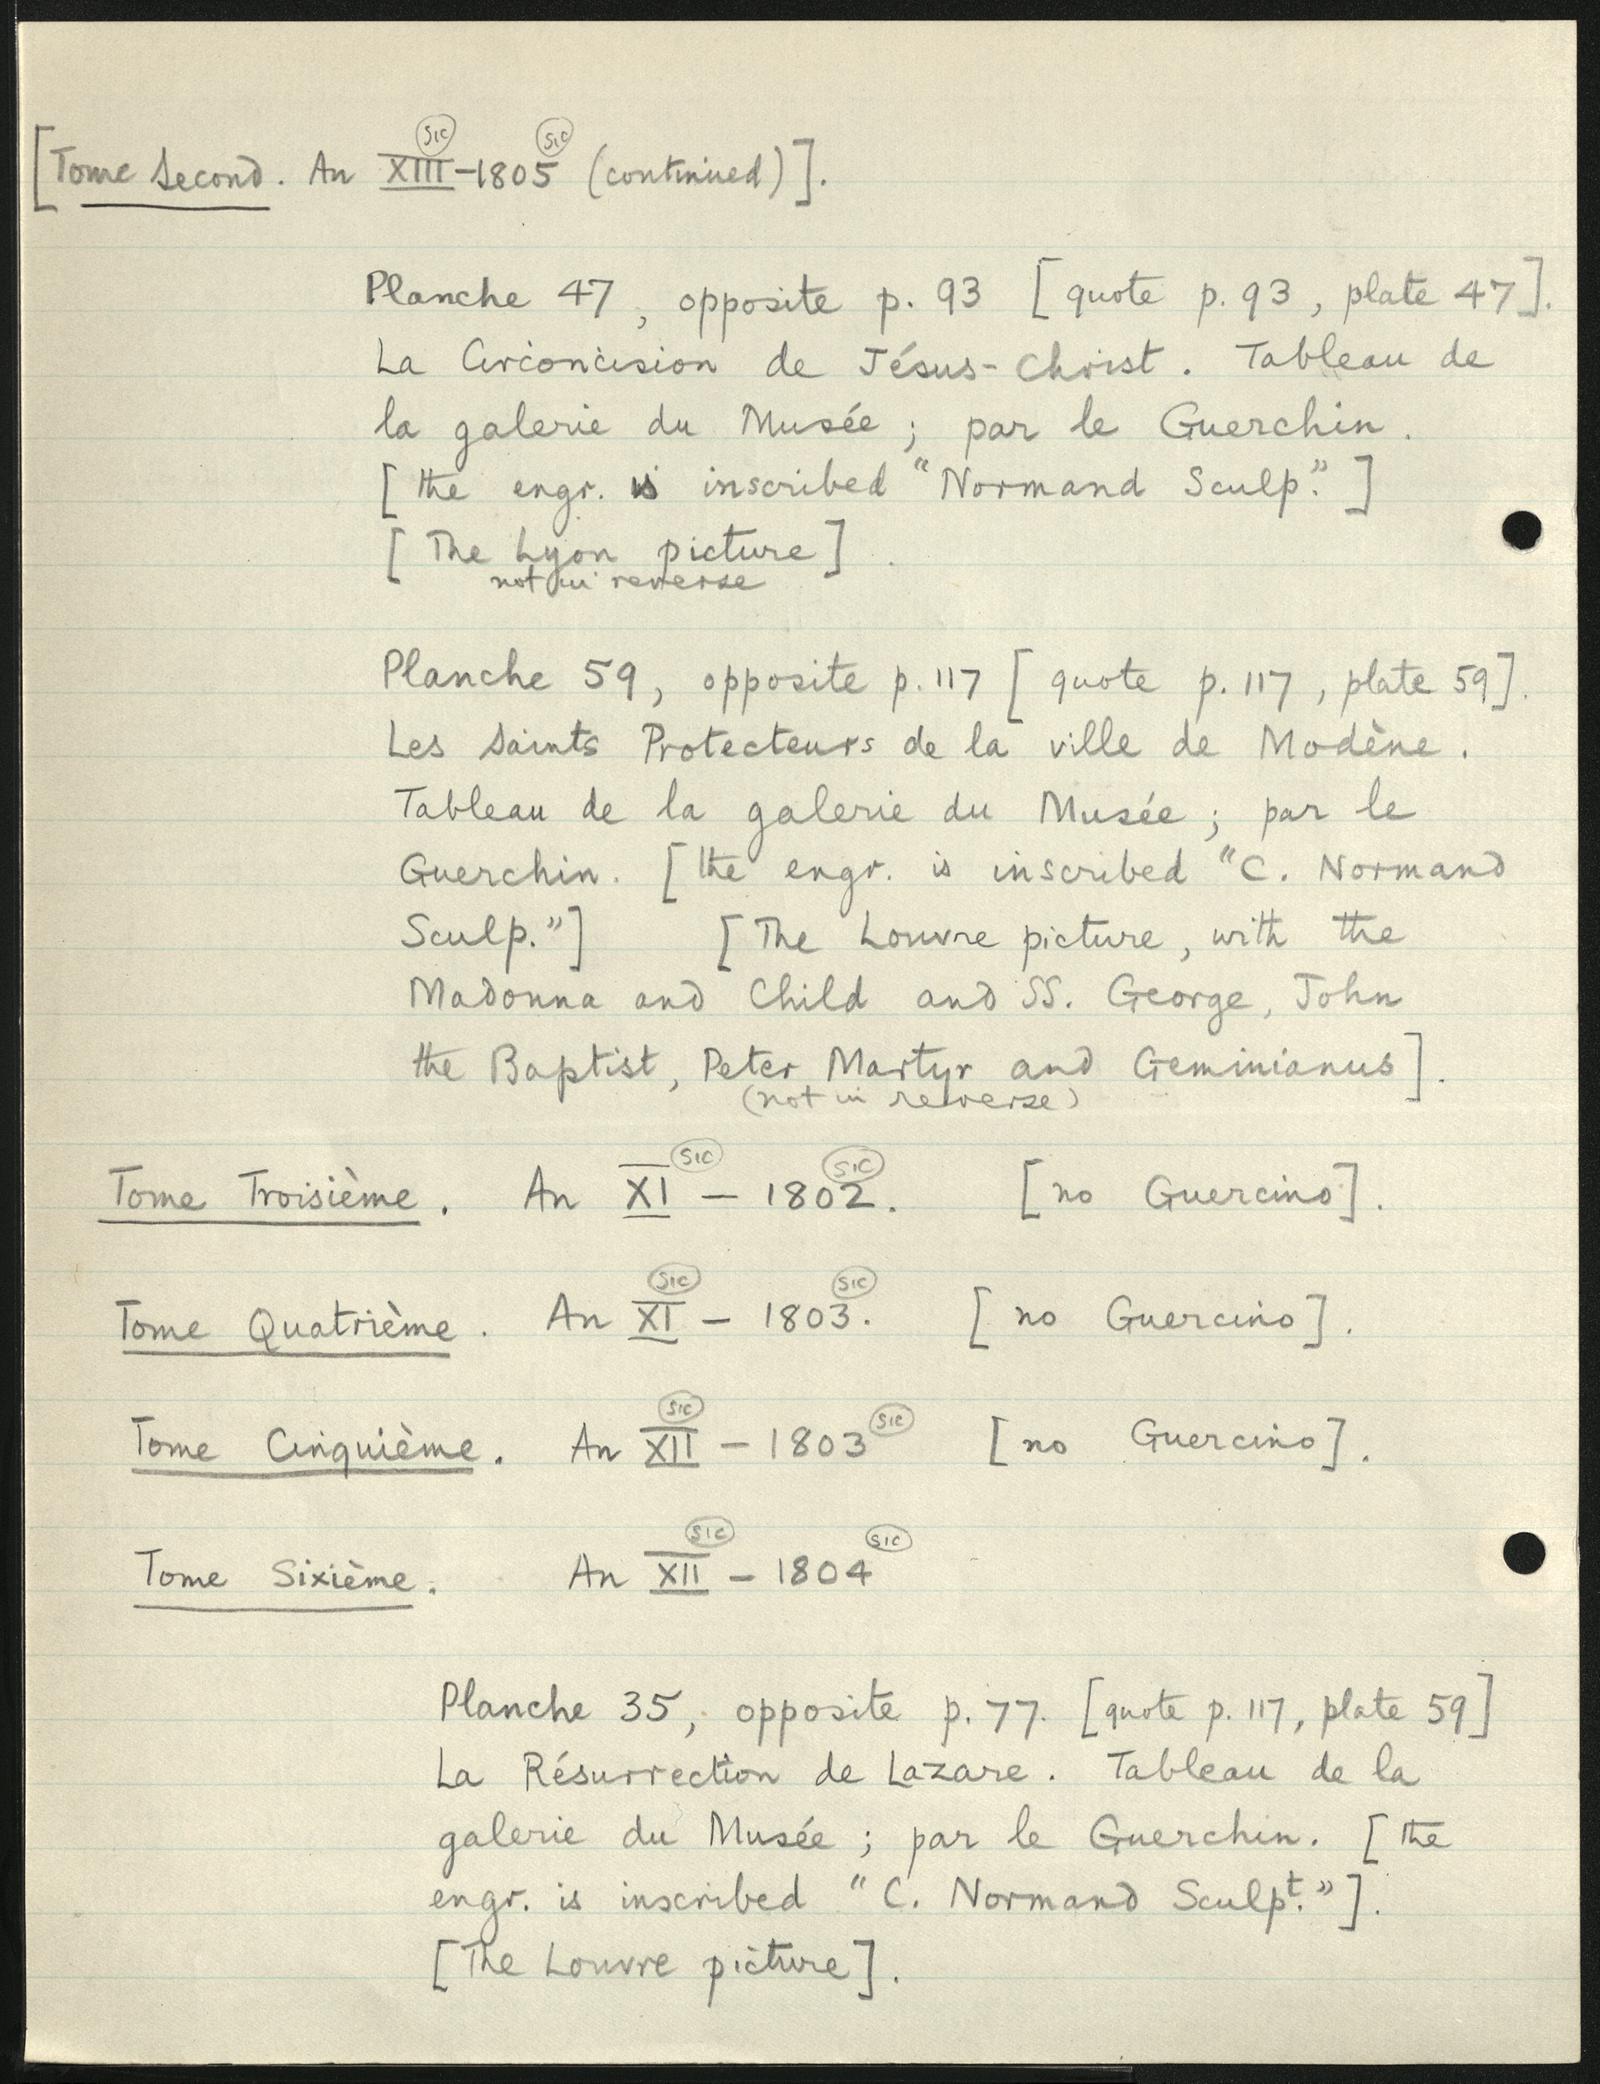 sic sic
[Tome Second. An XIII-1805 (continued)].
Planche 47, opposite p. 93 [quote p. 93, plate 47].
La Circoncision de Jésus-Christ. Tableau de
la galerie du Musée; par le Guerchin.
[the engr. is inscribed "Normand Sculp."]
[The Lyon picture].
not in reverse
Planche 59, opposite p. 117 [quote p. 117, plate 59].
Les Saints Protecteurs de la ville de Modène.
Tableau de la galerie du Musée; par le
Guerchin. [the engr. is inscribed "C. Normand
Sculp."] [The Louvre picture, with the
Madonna and Child and SS. George, John
the Baptist, Peter Martyr and Geminianus].
(not in reverse)
sic sic
Tome Troisième. An XI - 1802. [no Guercino].
sic sic
Tome Quatrième. An XI - 1803. [no Guercino].
sic sic
Tome Cinquième. An XII - 1803 [no Guercino].
sic sic
Tome Sixième. An XII - 1804
Planche 35, opposite p. 77. [quote p. 117, plate 59]
La Résurrection de Lazare. Tableau de la
galerie du Musée; par le Guerchin. [the
engr. is inscribed "C. Normand Sculpt."].
[The Louvre picture].